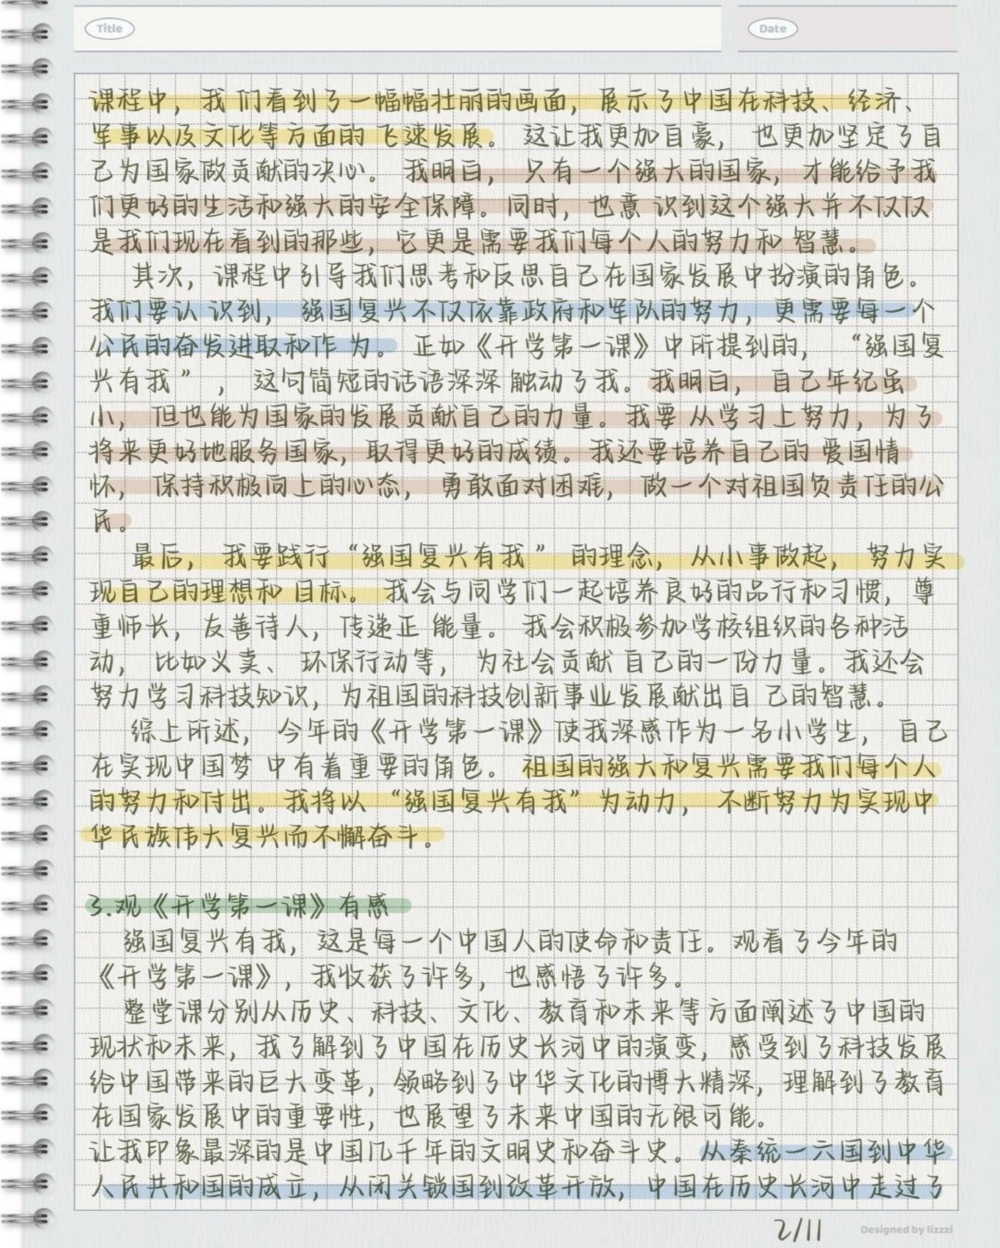 Title
Date
课程中，我们看到了一幅幅壮丽的画面，展示了中国在科技、经济、
军事以及文化等方面的飞速发展。这让我更加自豪，也更加坚定了自
己为国家做贡献的决心。我明白，只有一个强大的国家，才能给予我
们更好的生活和强大的安全保障。同时，也意识到这个强大并不仅仅
是我们现在看到的那些，它更是需要我们每个人的努力和智慧。
其次，课程中引导我们思考和反思自己在国家发展中扮演的角色。
我们要认识到，强国复兴不仅依靠政府和军队的努力，更需要每一个
公民的奋发进取和作为。正如《开学第一课》中所提到的，“强国复
兴有我”，这句简短的话语深深触动了我。我明白，自己年纪虽
小，但也能为国家的发展贡献自己的力量。我要从学习上努力，为了
将来更好地服务国家，取得更好的成绩。我还要培养自己的爱国情
怀，保持积极向上的心态，勇敢面对困难，做一个对祖国负责任的公
民。
最后，我要践行“强国复兴有我”的理念，从小事做起，努力实
现自己的理想和目标。我会与同学们一起培养良好的品行和习惯，尊
重师长，友善待人，传递正能量。我会积极参加学校组织的各种活
动，比如义卖、环保行动等，为社会贡献自己的一份力量。我还会
努力学习科技知识，为祖国的科技创新事业发展献出自己的智慧。
综上所述，今年的《开学第一课》使我深感作为一名小学生，自己
在实现中国梦中有着重要的角色。祖国的强大和复兴需要我们每个人
的努力和付出。我将以“强国复兴有我”为动力，不断努力为实现中
华民族伟大复兴而不懈奋斗。
3.观《开学第一课》有感
强国复兴有我，这是每一个中国人的使命和责任。观看了今年的
《开学第一课》，我收获了许多，也感悟了许多。
整堂课分别从历史、科技、文化、教育和未来等方面阐述了中国的
现状和未来，我了解到了中国在历史长河中的演变，感受到了科技发展
给中国带来的巨大变革，领略到了中华文化的博大精深，理解到了教育
在国家发展中的重要性，也展望了未来中国的无限可能。
让我印象最深的是中国几千年的文明史和奋斗史。从秦统一六国到中华
人民共和国的成立，从闭关锁国到改革开放，中国在历史长河中走过了
2/11
Designed by lizzzi